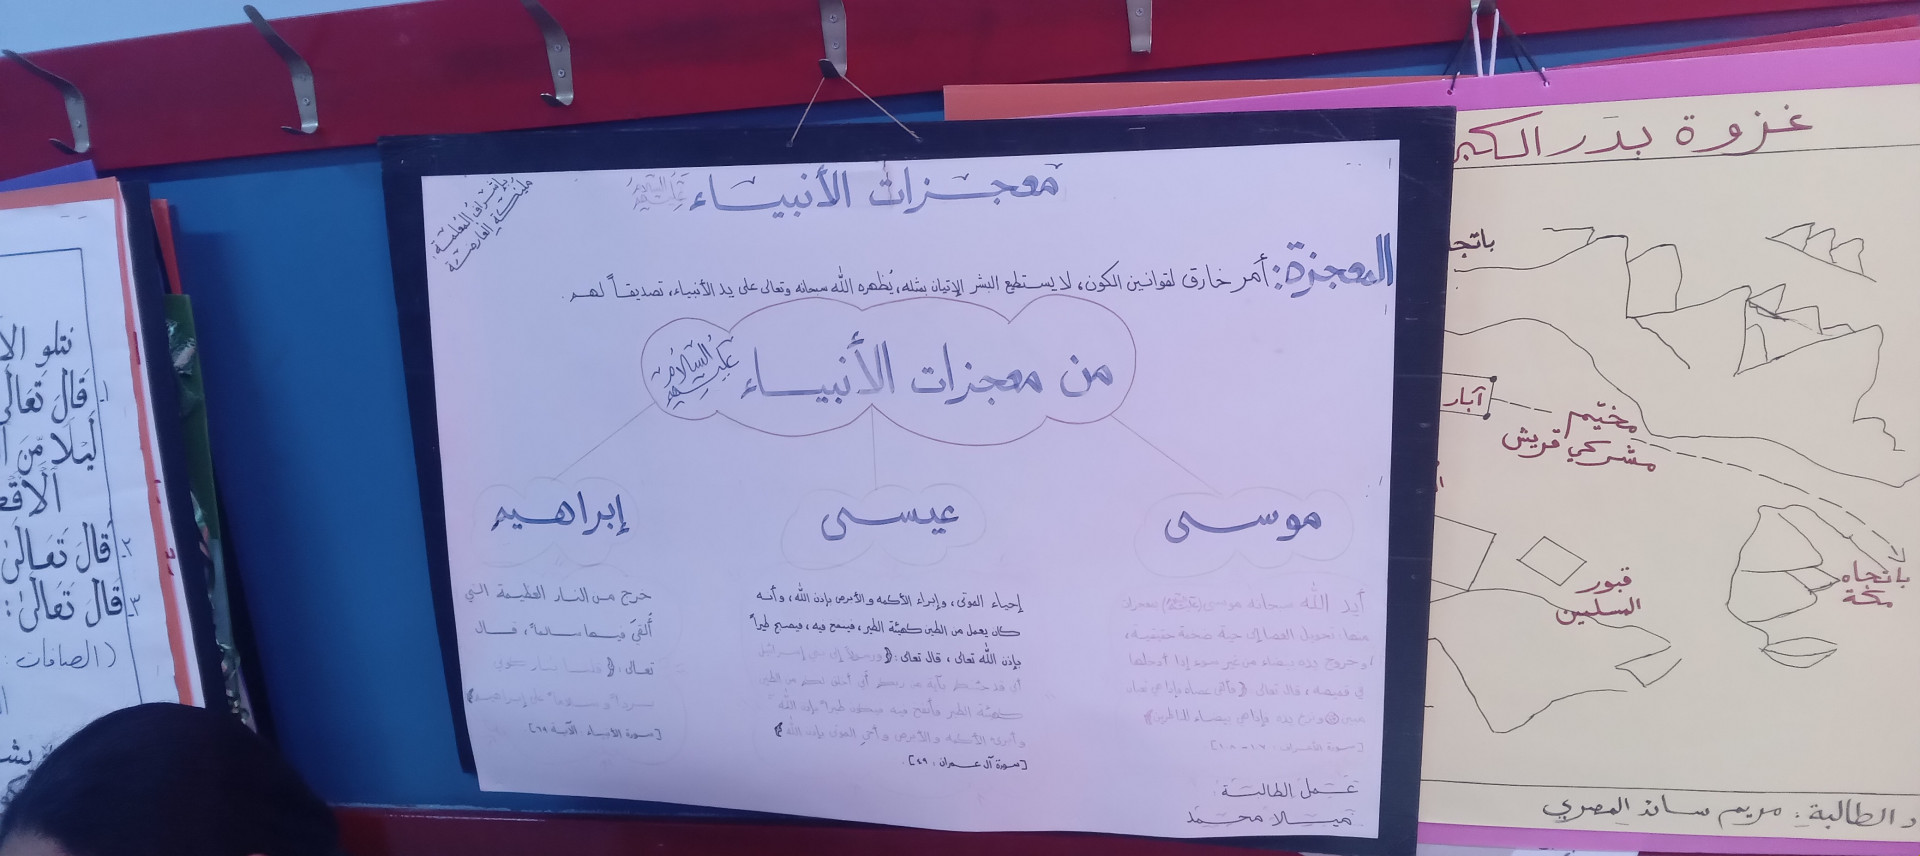 معجزات الأنبياء عليهم السلام
بإشراف المعلمة:
المعجزة: أمر خارق لقوانين الكون، لا يستطيع البشر الإتيان بمثله، يُظهره الله سبحانه وتعالى على يد الأنبياء، تصديقاً لهم.
من معجزات الأنبياء عليهم السلام
موسى
أيد الله سبحانه موسى
منها تحويل العصا إلى حية ضخمة حقيقية،
وخروج يده بيضاء من غير سوء إذا أدخلها
في قميصه، قال تعالى: ﴿فألقى عصاه فإذا هي ثعبان
مبين ونزع يده فإذا هي بيضاء للناظرين﴾
عيسى
إحياء الموتى، وإبراء الأكمه والأبرص بإذن الله، وأنه
كان يعمل من الطين كهيئة الطير، فينفخ فيه، فيصبح طيراً
بإذن الله تعالى، قال تعالى: ﴿ورسولا إلى بني إسرائيل
أني قد جئتكم بآية من ربكم أني أخلق لكم من الطين
كهيئة الطير فأنفخ فيه فيكون طيراً بإذن الله
وأبرئ الأكمه والأبرص وأحي الموتى بإذن الله﴾
[سورة آل عمران: ٤٩].
إبراهيم
خرج من النار العظيمة التي
أُلقيَ فيها سالماً، قال
تعالى: ﴿قلنا يا نار كوني
برداً وسلاماً على إبراهيم﴾
[سورة الأنبياء: الآية ٦٩]
عمل الطالبة:
محمد
غزوة بدر الكبر
باتجا
آبار
مخيّم
مشركي قريش
قبور
المسلمين
باتجاه
مكة
د الطالبة: مريم سائد المصري
نتلو الآ
١- قَالَ تَعَالَى
لَيْلًا مِّنَ ا
الْأَقْصَ
٢- قَالَ تَعَالَى
٣- قَالَ تَعَالَى:
(الصافات: